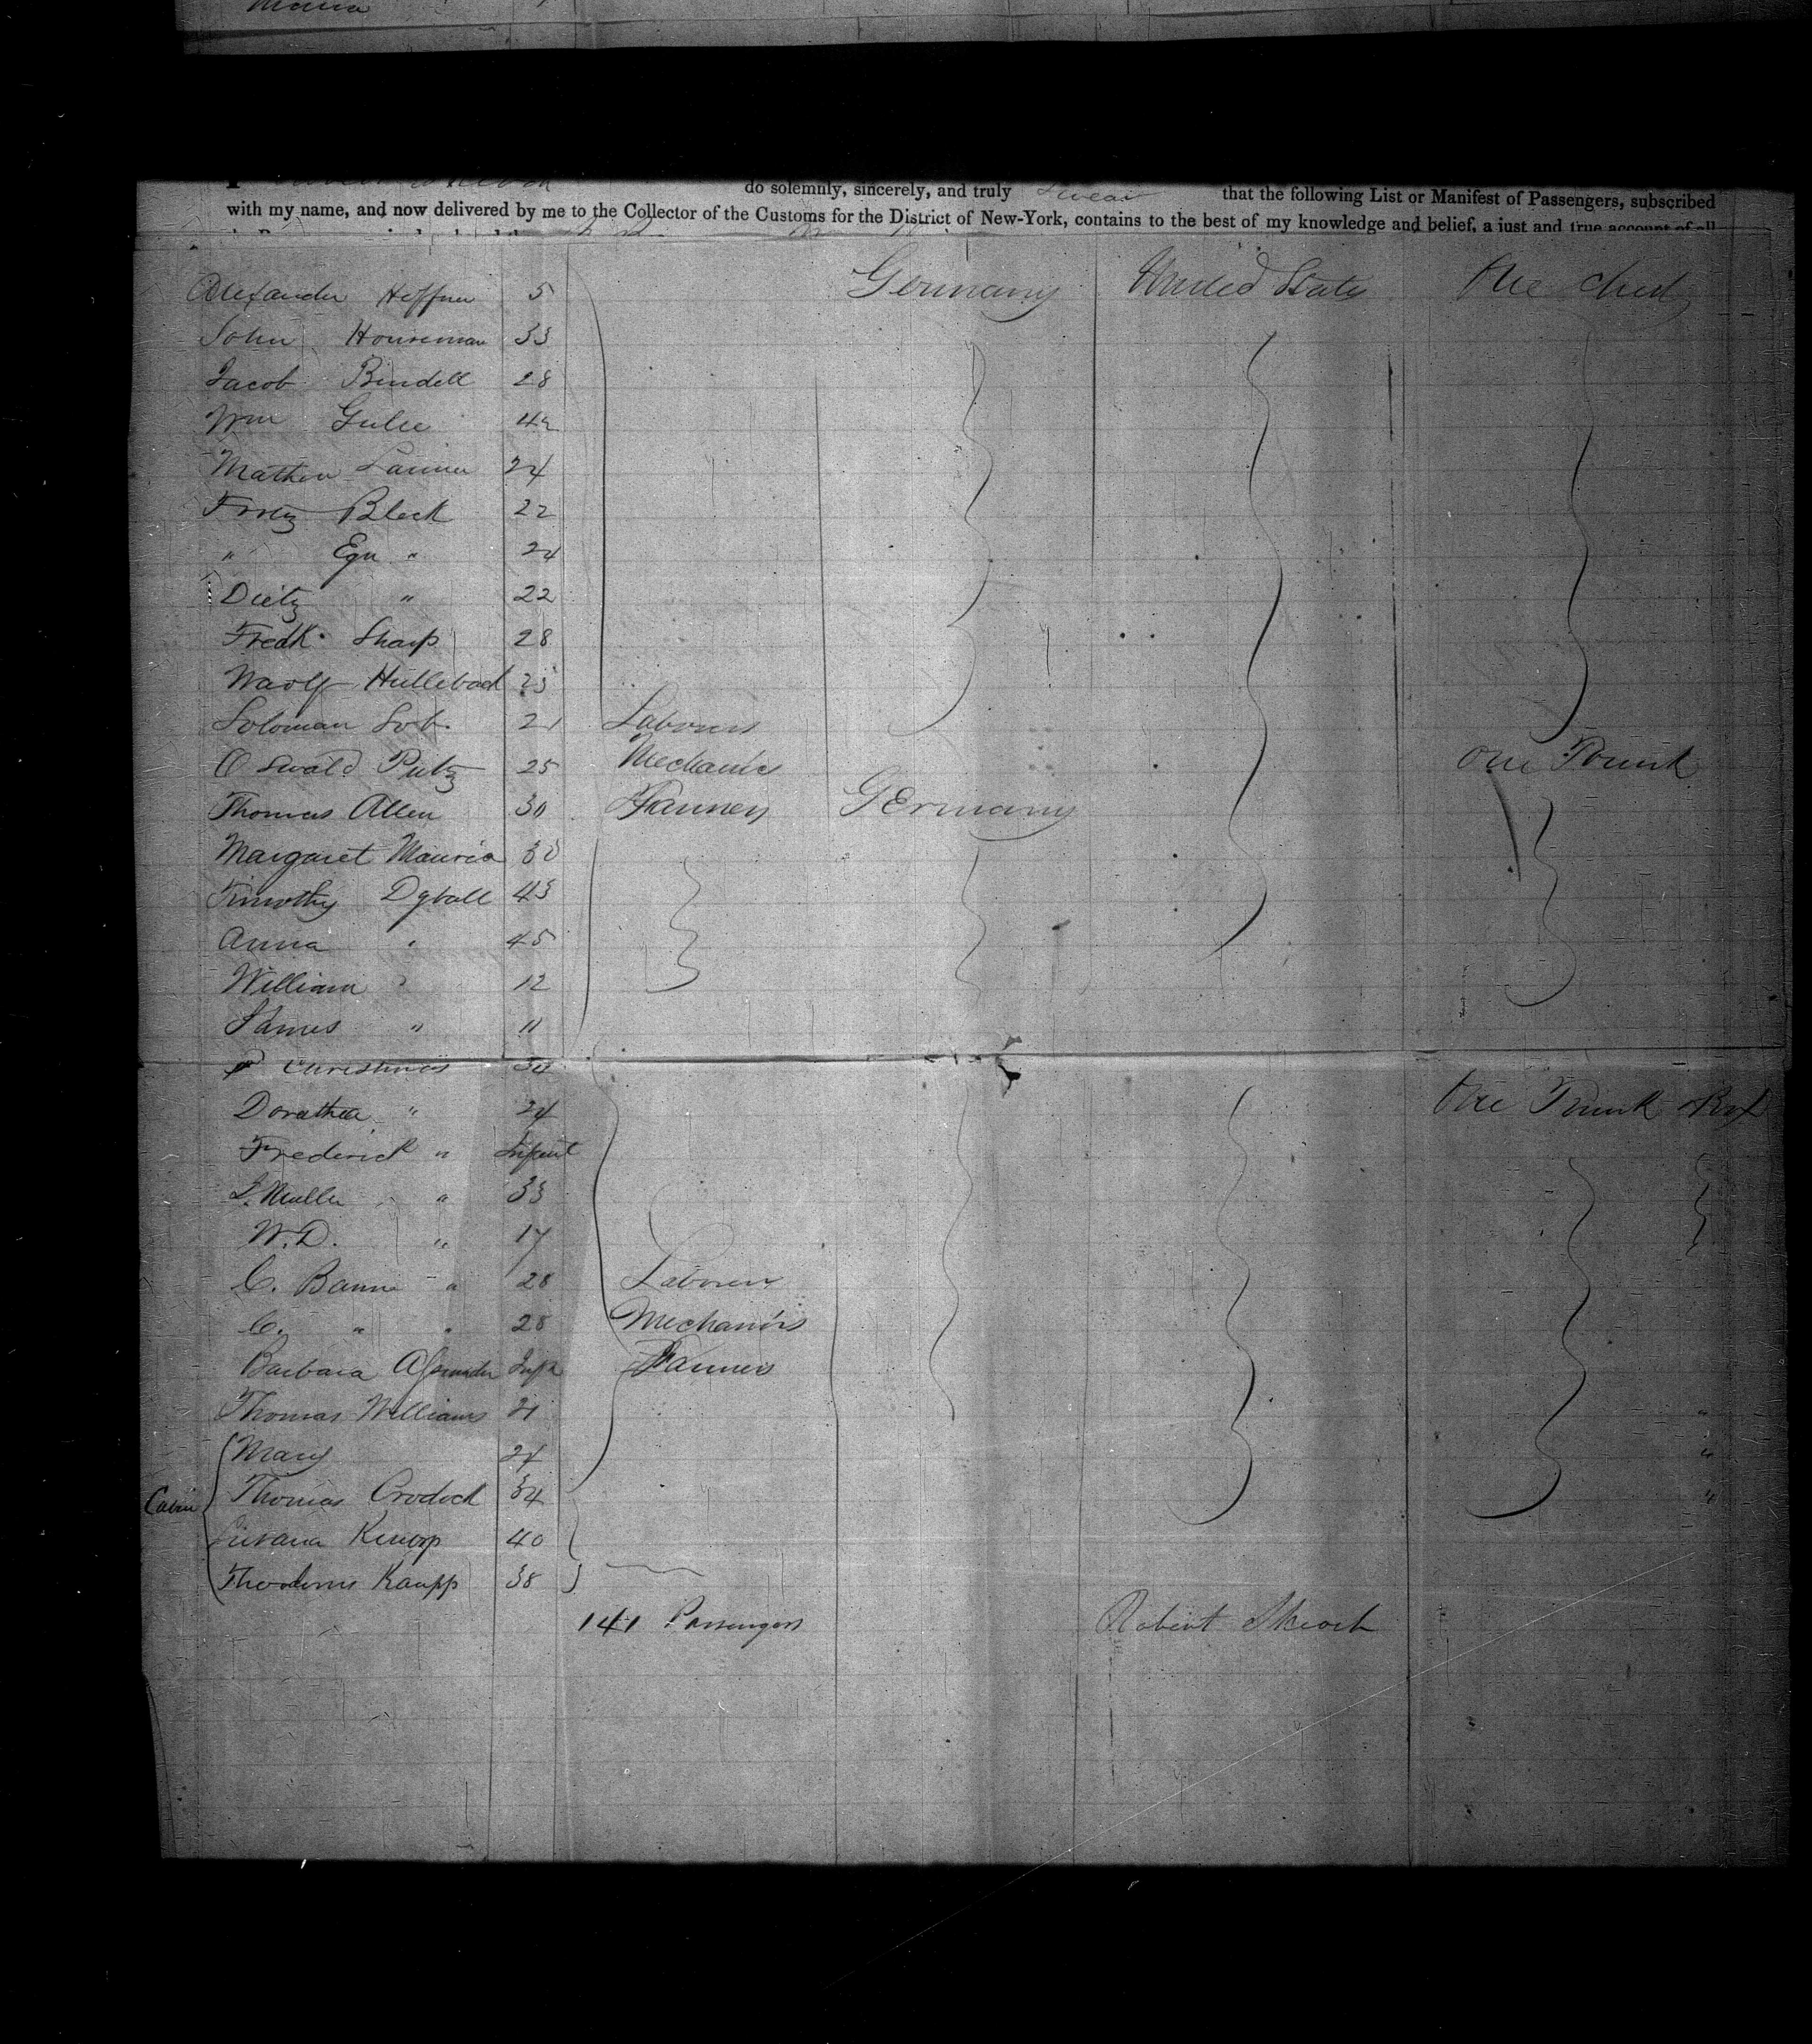 Maria
do solemnly, sincerely, and truly swear that the following List or Manifest of Passengers, subscribed
with my name, and now delivered by me to the Collector of the Customs for the District of New-York, contains to the best of my knowledge and belief, a just and true account of all
Alexander Heffner 5 Germany United States One chest
John Houseman 33
Jacob Bindell 28
Wm 42
Mathew 24
Black 22
" " 24
Dietz " 22
Fredk. Sharp 28
Hullebad 25
Soloman Lob. 21 Laborers
Oswald Putz 25 Mechanics One Trunk
Thomas Allen 30 Farmers Germany
Margaret Mauria 30
Timothy Dyball 43
Anna " 45
William " 12
James " 11
P Christmas 34
Dorathea " 24 One Trunk & Box
Frederick " Infant
" 33
W. D. " 17
C. " 28 Laborers
C. " " 28 Mechanics
Barbara Alexander Inft Farmers
Thomas Williams 21
Mary 24 "
Cabin Thomas Crodock 34 "
Knoop 40
Theodorus Kaupp 38
141 Passengers Robert Skeoch